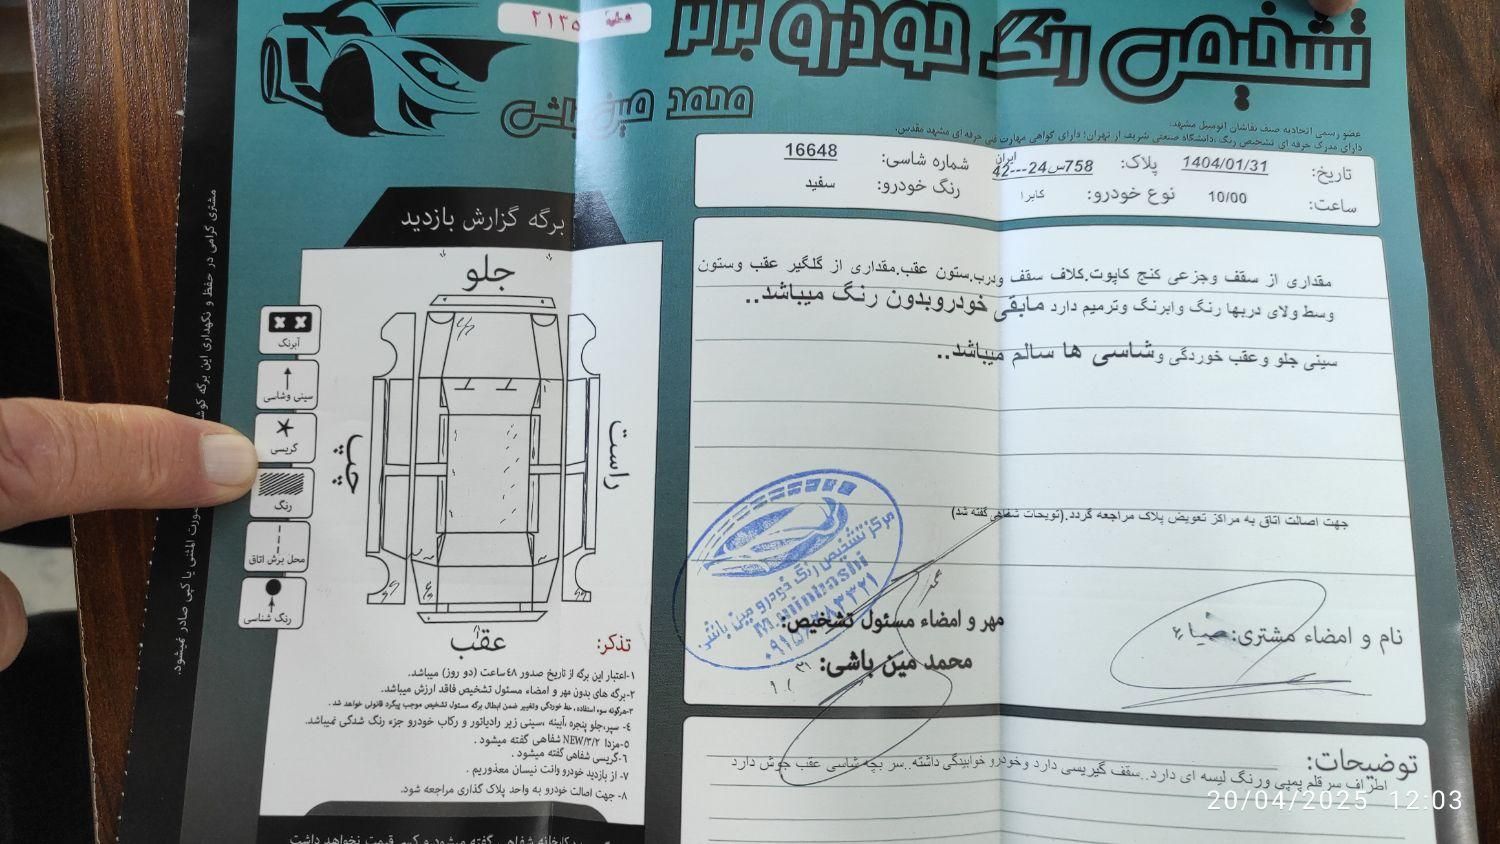 ۲۱۳۵
تشخیص رنگ خودرو برتر
محمد مین باشی
عضو رسمی اتحادیه صنف نقاشان اتومبیل مشهد.
دارای مدرک حرفه ای تشخیص رنگ ،دانشگاه صنعتی شریف از تهران؛ دارای گواهی مهارت فنی حرفه ای مشهد مقدس.
تاریخ: 1404/01/31 پلاک: ایران 42---24س758 شماره شاسی: 16648
ساعت: 10/00 نوع خودرو: کاپرا رنگ خودرو: سفید
مقداری از سقف وجزعی کنج کاپوت.کلاف سقف ودرب.ستون عقب.مقداری از گلگیر عقب وستون
وسط ولای دربها رنگ وابرنگ وترمیم دارد مابقی خودروبدون رنگ میباشد..
سینی جلو وعقب خوردگی وشاسی ها سالم میباشد..
جهت اصالت اتاق به مراکز تعویض پلاک مراجعه گردد.(توبحات شفاهی گفته شد)
نام و امضاء مشتری:
مهر و امضاء مسئول تشخیص:
محمد مین باشی:
مرکز تشخیص رنگ خودرو مین باشی
M.minbashi
توضیحات:
اطراف سرقلم پمپی ورنگ لیسه ای دارد..سقف گیریسی دارد وخودرو خوابیدگی داشته..سر بچه شاسی عقب جوش دارد
برگه گزارش بازدید
جلو
راست
چپ
عقب
آبرنگ
سینی وشاسی
گریسی
رنگ
محل برش اتاق
رنگ شناسی
تذکر:
۱-اعتبار این برگه از تاریخ صدور ۴۸ ساعت (دو روز) میباشد.
۲-برگه های بدون مهر و امضاء مسئول تشخیص فاقد ارزش میباشد.
۳-هرگونه سوء استفاده، خط خوردگی وتغییر ضمن ابطال برگه مسئول تشخیص موجب پیگرد قانونی خواهد شد.
٤- سپر،جلو پنجره ،آیینه ،سینی زیر رادیاتور و رکاب خودرو جزء رنگ شدگی نمیباشد.
۵-مزدا NEW/۳/۲ شفاهی گفته میشود.
٦-گریسی شفاهی گفته میشود.
۷- از بازدید خودرو وانت نیسان معذوریم.
۸- جهت اصالت خودرو به واحد پلاک گذاری مراجعه شود.
مشتری گرامی در حفظ و نگهداری این برگه
صورت المثنی یا کپی صادر نمیشود.
20/04/2025 12:03